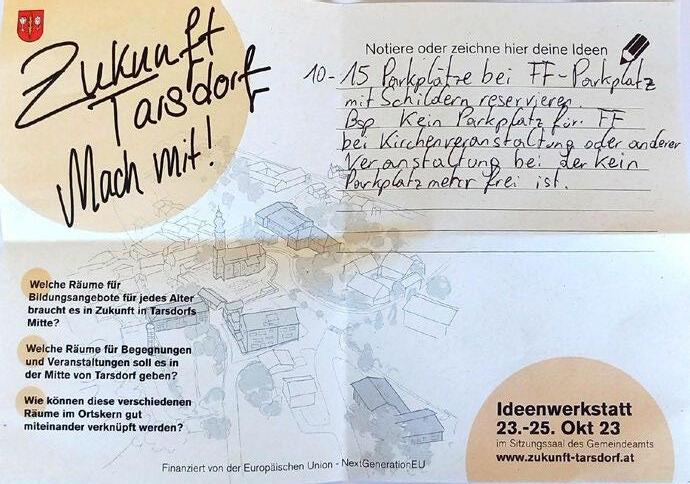 Zukunft
Tarsdorf
Mach mit!
Notiere oder zeichne hier deine Ideen
10-15 Parkplätze bei FF-Parkplatz
mit Schildern reservieren.
Bsp Kein Parkplatz für FF
bei Kirchenveranstaltung oder anderer
Veranstaltung bei der kein
Parkplatz mehr frei ist.
Welche Räume für
Bildungsangebote für jedes Alter
braucht es in Zukunft in Tarsdorfs
Mitte?
Welche Räume für Begegnungen
und Veranstaltungen soll es in
der Mitte von Tarsdorf geben?
Wie können diese verschiedenen
Räume im Ortskern gut
miteinander verknüpft werden?
Ideenwerkstatt
23.-25. Okt 23
im Sitzungssaal des Gemeindeamts
www.zukunft-tarsdorf.at
Finanziert von der Europäischen Union - NextGenerationEU